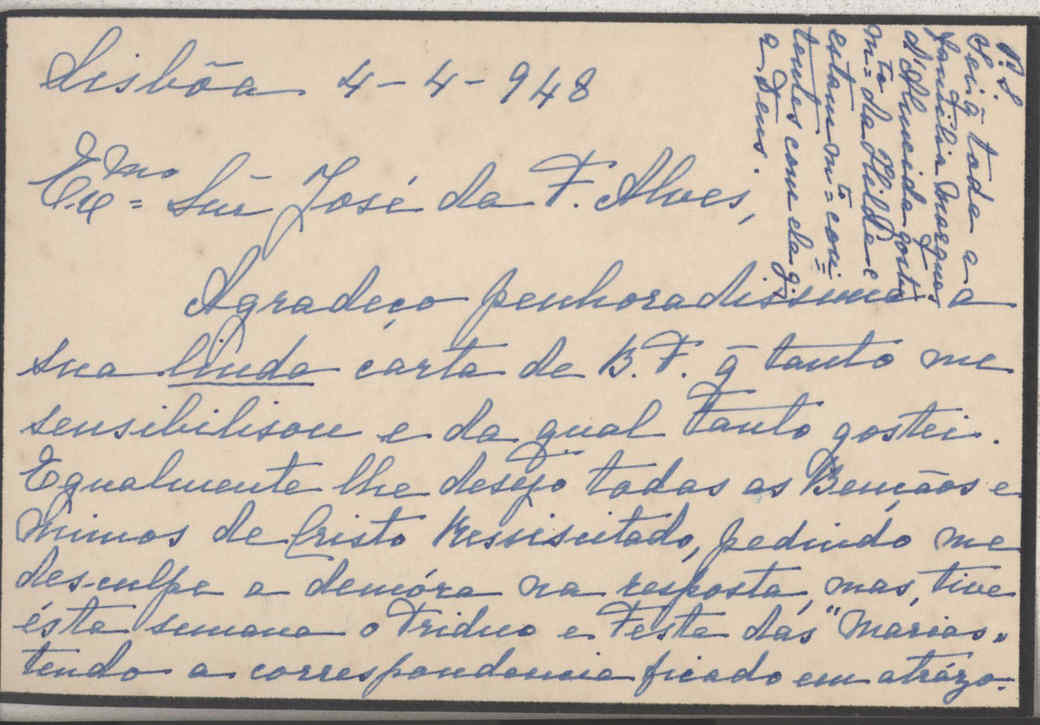 Lisbôa 4-4-948
Exmo= Snr José da F. Alves,
Agradeço penhoradissima a
sua linda carta de B. F. q̃ tanto me
sensibilisou e da qual tanto gostei.
Egualmente lhe desejo todas as Bençãos e
Mimos de Cristo Ressiscitado, pedindo me
desculpe a demóra na resposta, mas, tive
ésta semana o Triduo e Festa das "Marias"
tendo a correspondencia ficado em atrázo.
P.S.
Sei q̃ toda a
familia Marques
d'Almeida gosta
mto da Hilda e
estam mto con=
tentes com ela g.
a Deus.